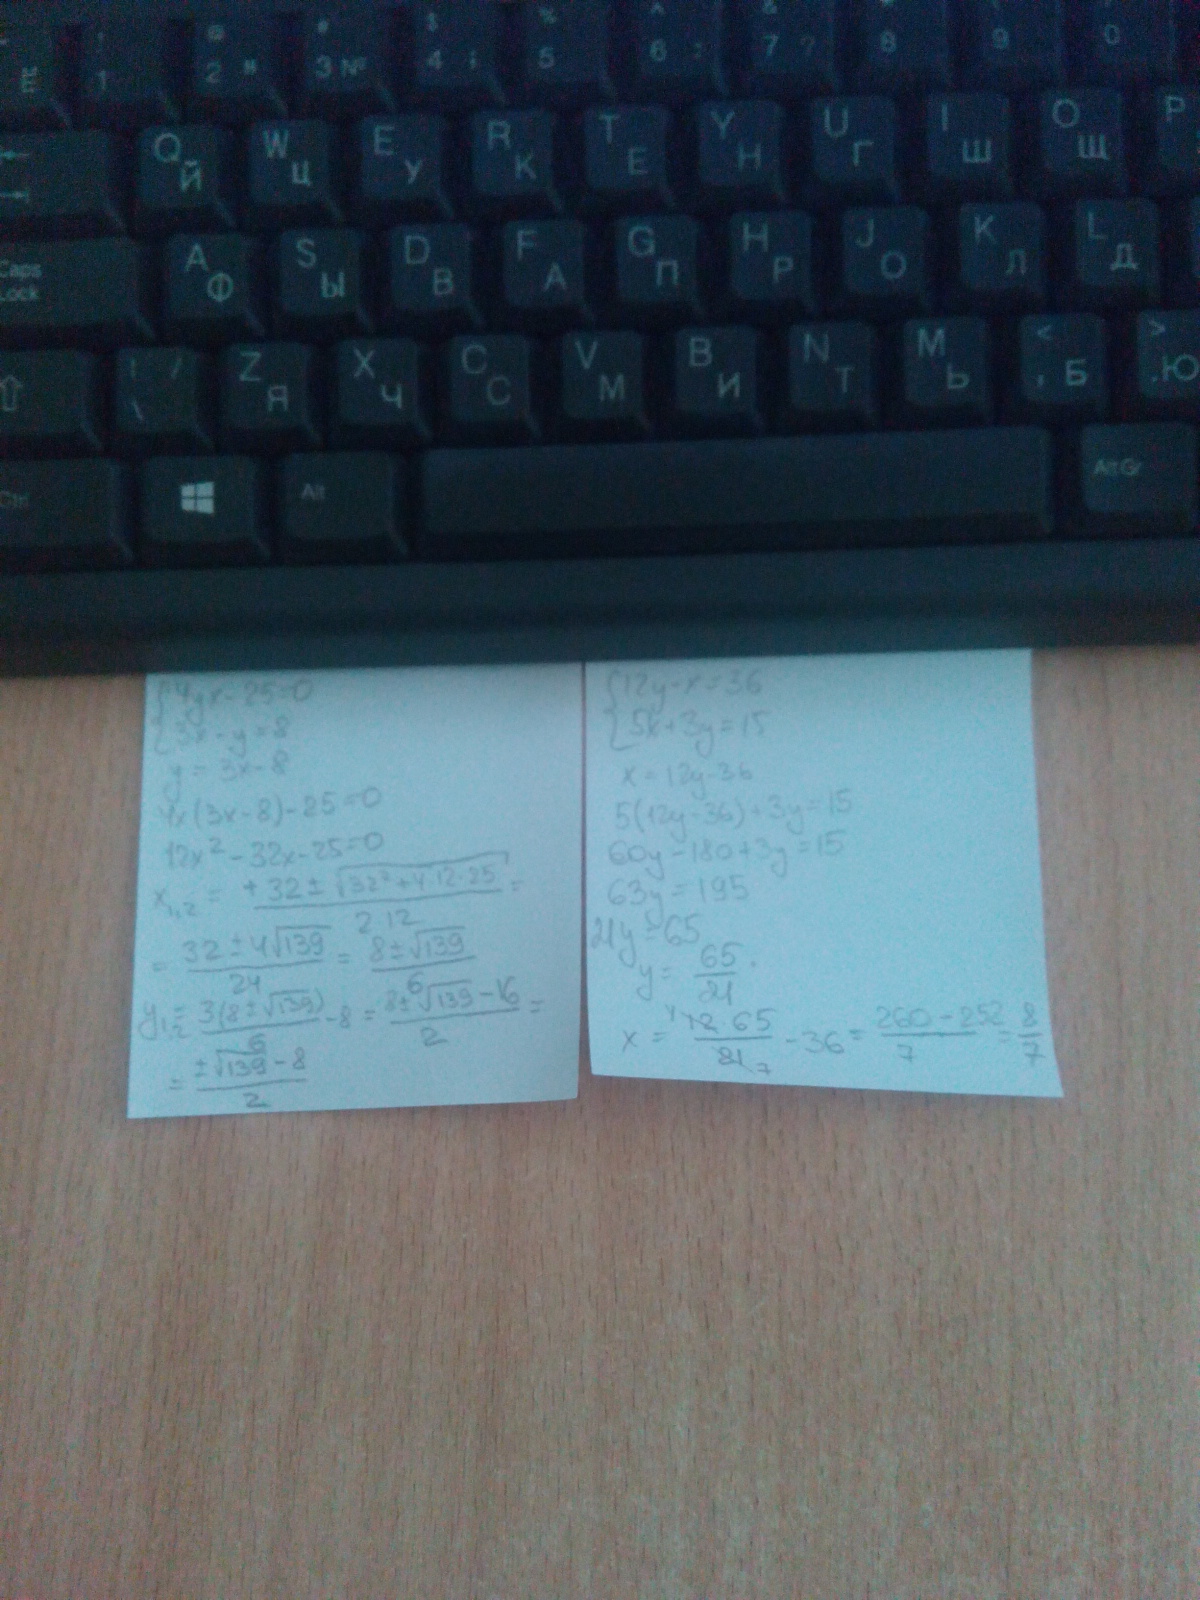 ! @ # $ % ^ & * ( )
Ё 1 2 " 3 № 4 ; 5 6 : 7 ? 8 9 0
Q Й W Ц E У R К T Е Y Н U Г I Ш O Щ P
Caps Lock A Ф S Ы D В F А G П H Р J О K Л L Д
| / \ Z Я X Ч C С V М B И N Т M Ь < , Б > . Ю
Ctrl Alt Alt Gr
{4yx-25=0
{3x-y=8
y=3x-8
4x(3x-8)-25=0
12x²-32x-25=0
x₁,₂ = (+32±√(32²+4·12·25))/(2·12) =
= (32±4√139)/24 = (8±√139)/6
y₁,₂ = 3(8±√139)/6 -8 = (8±√139-16)/2 =
= (±√139-8)/2
{12y-x=36
{5x+3y=15
x=12y-36
5(12y-36)+3y=15
60y-180+3y=15
63y=195
21y=65
y=65/21.
x = ⁴12·65/21₇ -36= (260-252)/7 = 8/7